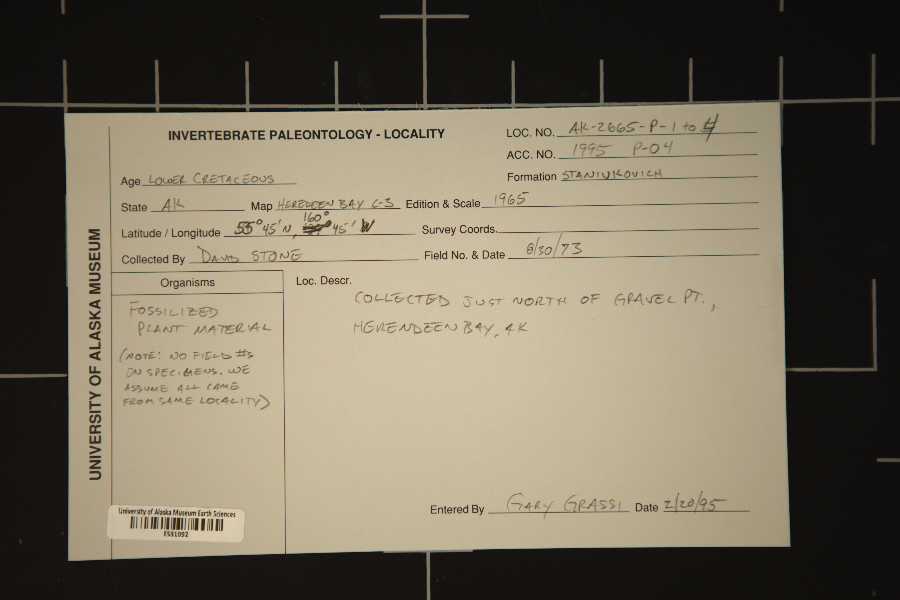 INVERTEBRATE PALEONTOLOGY - LOCALITY
LOC. NO. AK-2665-P-1 to 4
ACC. NO. 1995 P-04
Age LOWER CRETACEOUS
Formation STANIUKOVICH
State AK Map HERENDEEN BAY C-3 Edition & Scale 1965
Latitude / Longitude 55° 45' N, 160° 45' W Survey Coords.
Collected By DAVID STONE Field No. & Date 8/30/73
Organisms
Loc. Descr.
COLLECTED JUST NORTH OF GRAVEL PT.,
HERENDEEN BAY, AK
FOSSILIZED
PLANT MATERIAL
(NOTE: NO FIELD #S
ON SPECIMENS. WE
ASSUME ALL CAME
FROM SAME LOCALITY)
UNIVERSITY OF ALASKA MUSEUM
Entered By GARY GRASSI Date 2/20/95
University of Alaska Museum Earth Sciences
ES31092